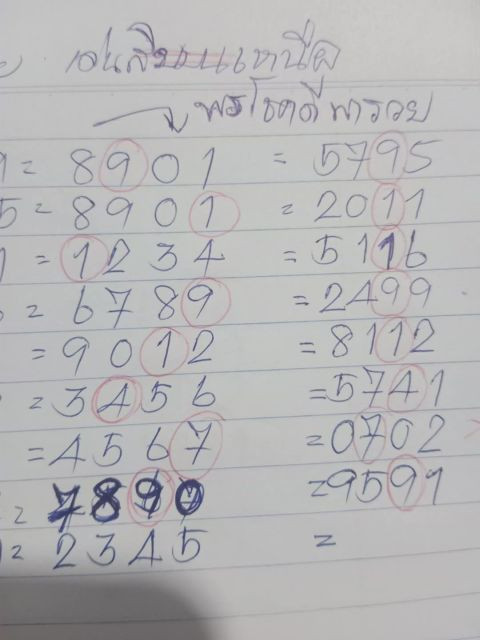 พรโชคดีพารวย
9 = 8901 = 5795
5 = 8901 = 2011
1 = 1234 = 5116
= 6789 = 2499
= 9012 = 8112
= 3456 = 5741
= 4567 = 0702
= 7890 = 9591
= 2345 =